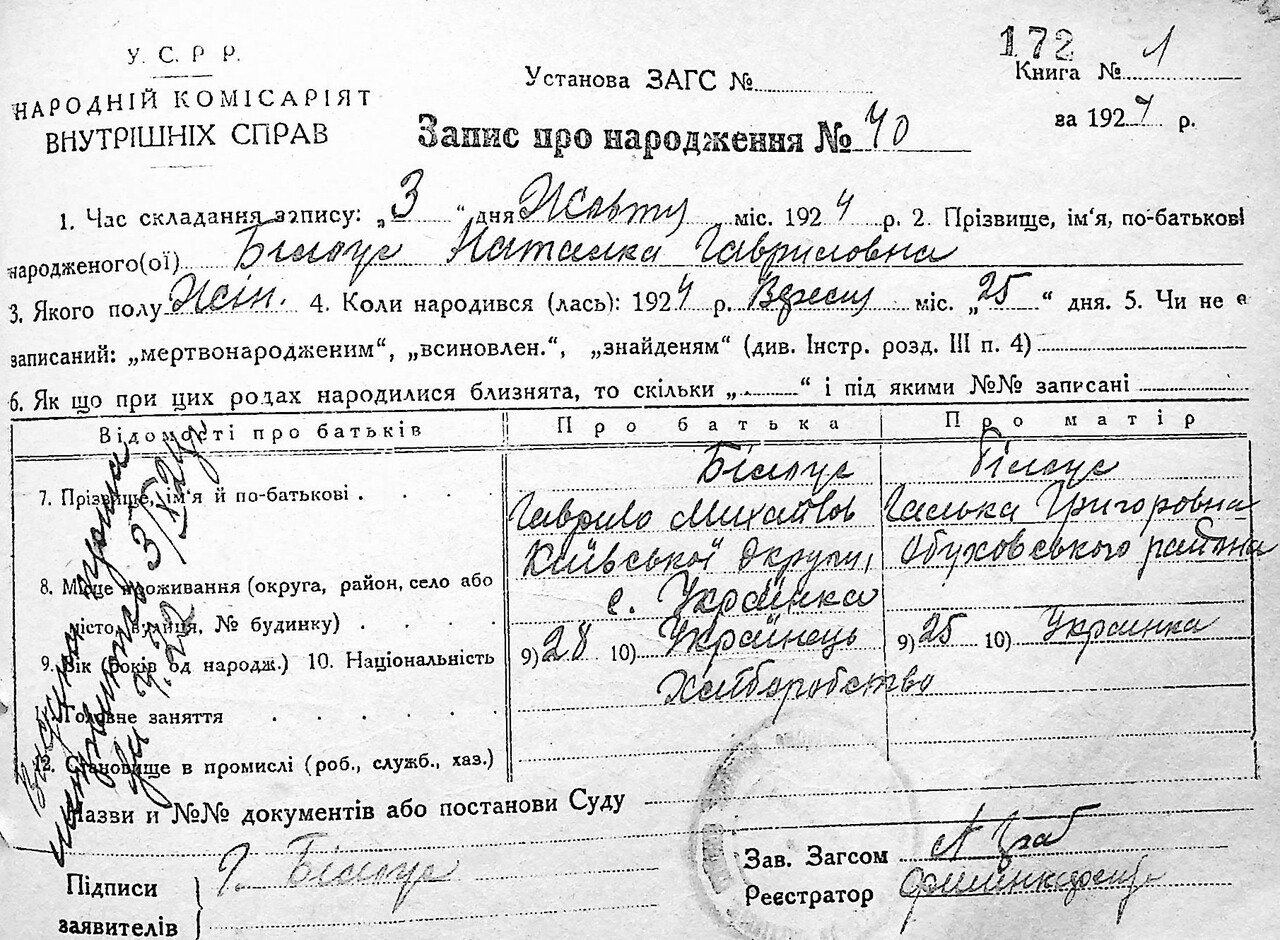 У. С. Р Р.
НАРОДНІЙ КОМІСАРІЯТ
ВНУТРІШНІХ СПРАВ
Установа ЗАГС №
172
Книга № 1
за 1924 р.
Запис про народження № 40
1. Час складання запису: „3“ дня Жовтн міс. 1924 р. 2. Прізвище, ім'я, по-батькові
народженого(ої) Білоус Наталка Гавриловна
3. Якого полу Жін. 4. Коли народився (лась): 1924 р. Вересн міс. „25“ дня. 5. Чи не є
записаний: „мертвонародженим“, „всиновлен.“, „знайденям“ (див. Інстр. розд. III п. 4)
6. Як що при цих родах народилися близнята, то скільки „ “ і під якими №№ записані
Відомості про батьків Про батька Про матір
Білоус Білоус
7. Прізвище, ім'я й по-батькові
Гаврило Михайлов Галька Григоровна
Київської Округи, Обуховського района
8. Місце проживання (округа, район, село або
с. Українка
місто, вулиця, № будинку)
9) 28 10) Українець 9) 25 10) Украинка
9. Вік (років од народж.) 10. Національність
Хліборобство
11. Головне заняття
12. Становище в промислі (роб., служб., хаз.)
Назви и №№ документів або постанови Суду
Підписи
заявителів
Г. Білоус
Зав. Загсом
Реєстратор